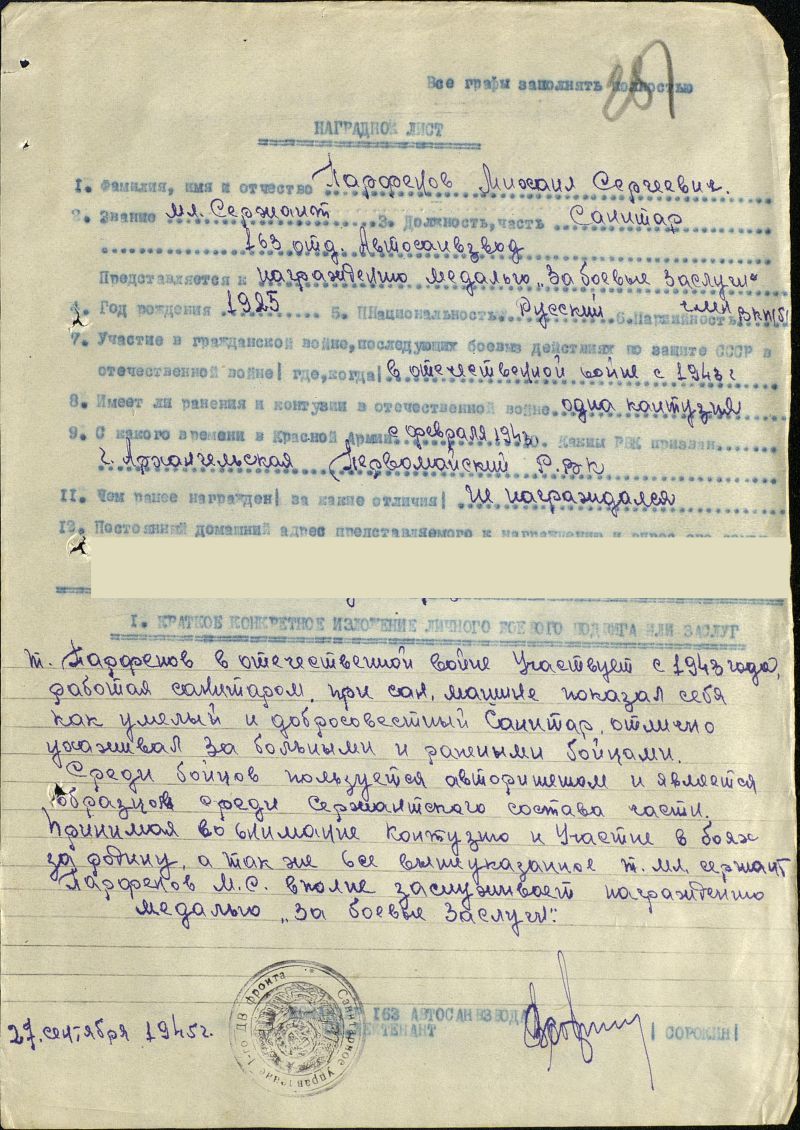 Все графы заполнять полностью
287
НАГРАДНОЙ ЛИСТ
1. Фамилия, имя и отчество Парфенов Михаил Сергеевич.
2. Звание мл. Сержант 3. Должность, часть Санитар
163 отд. Автосанвзвод
Представляется к награждению медалью „За боевые заслуги"
4. Год рождения 1925 5. ННациональность Русский 6. Партийность член ВКП(б)
7. Участие в гражданской войне, последующих боевых действиях по защите СССР в
отечественной войне| где, когда| в отечественной войне с 1943 г
8. Имеет ли ранения и контузии в отечественной войне одна контузия
9. С какого времени в Красной Армии с февраля 1943 10. Каким РВК призван
г. Архангельская Первомайский Р.В.К
11. Чем ранее награжден| за какие отличия| Не награждался
12. Постоянный домашний адрес представляемого к награждению и
I. КРАТКОЕ КОНКРЕТНОЕ ИЗЛОЖЕНИЕ ЛИЧНОГО БОЕВОГО ПОДВИГА ИЛИ ЗАСЛУГ
т. Парфенов в отечественной войне участвует с 1943 года,
работая санитаром, при сан. машине показал себя
как умелый и добросовестный Санитар, отлично
ухаживал за больными и ранеными бойцами.
Среди бойцов пользуется авторитетом и является
образцом среди Сержантского состава части.
Принимая во внимание контузию и участие в боях
за родину, а так же все вышеуказанное т. мл. сержант
Парфенов М.С. вполне заслуживает награждению
медалью „За боевые Заслуги".
163 АВТОСАНВЗВОДА
27 сентября 1945 г. ЛЕЙТЕНАНТ | СОРОКИН|
Санитарное управление 1-го ДВ фронта